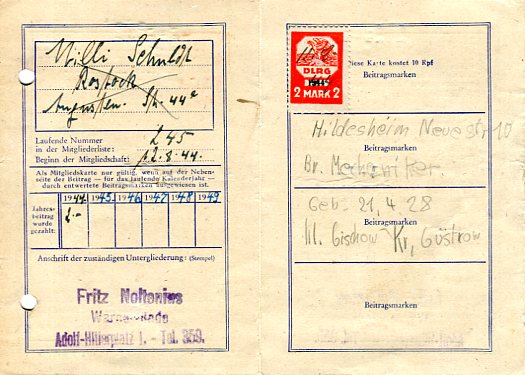 Willi Schuldt
Rostock
Augusten-Str. 44e
Laufende Nummer
in der Mitgliederliste: 245
Beginn der Mitgliedschaft: 12.8.44.
Als Mitgliedskarte nur gültig, wenn auf der Neben-
seite der Beitrag — für das laufende Kalenderjahr —
durch entwertete Beitragsmarken ausgewiesen ist.
1944 1945 1946 1947 1948 1949
Jahres-
beitrag
wurde
gezahlt:
2.-
Anschrift der zuständigen Untergliederung: (Stempel)
Fritz Noltenius
Warnemünde
Adolf-Hitlerplatz 1. - Tel. 359.
DLRG
2 MARK 2
Diese Karte kostet 10 Rpf
Beitragsmarken
Hildesheim Neue str 10
Beitragsmarken
Br. Mechaniker.
Geb. 21 4 28
Beitragsmarken
Gischow Kr, Güstrow
Beitragsmarken